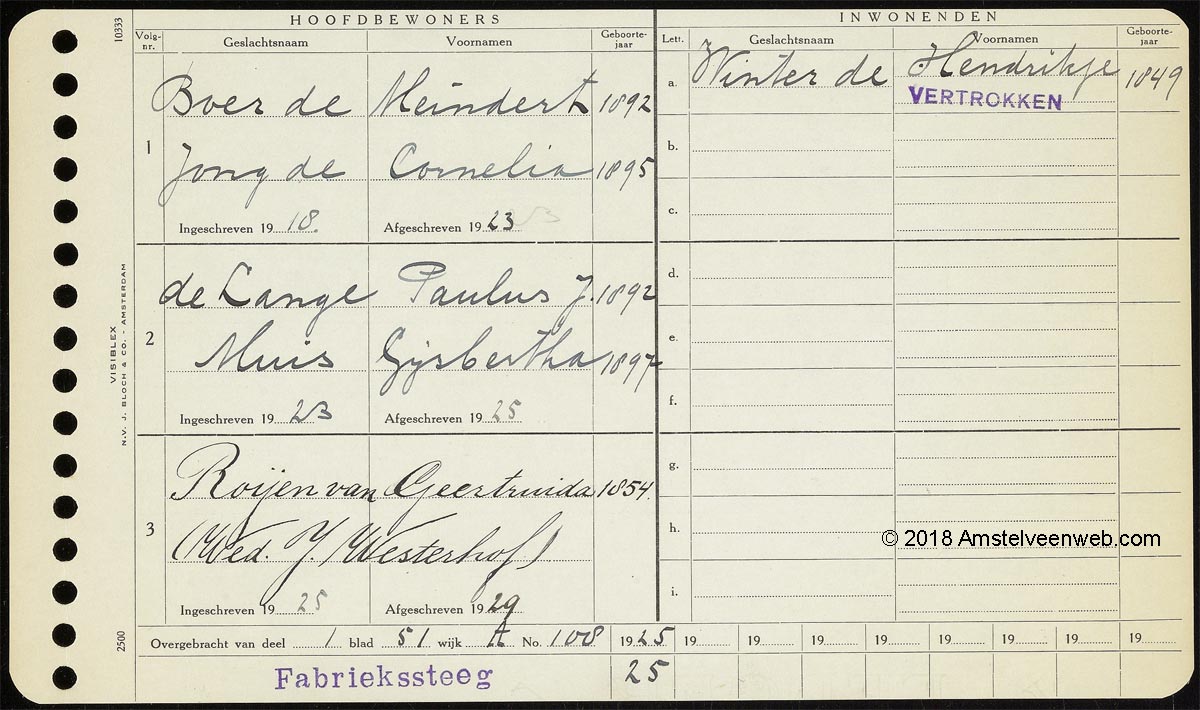 10333
HOOFDBEWONERS INWONENDEN
Volg-nr. Geslachtsnaam Voornamen Geboorte-jaar Lett. Geslachtsnaam Voornamen Geboorte-jaar
Boer de Meindert 1892 a. Winter de Hendrikje 1849
VERTROKKEN
1 b.
Jong de Cornelia 1895
c.
Ingeschreven 19 18. Afgeschreven 19 23
d.
de Lange Paulus J. 1892
2 e.
Muis Gijsbertha 1897
f.
Ingeschreven 19 23 Afgeschreven 19 25
g.
Roijen van Geertruida 1854
3 h.
(Wed. J. Westerhof)
i.
Ingeschreven 19 25 Afgeschreven 19 29
Overgebracht van deel 1 blad 51 wijk A No. 108 1925 19 19 19 19 19 19 19 19
Fabriekssteeg 25
VISIBLEX
N.V. J. BLOCH & CO. - AMSTERDAM
2500
© 2018 Amstelveenweb.com